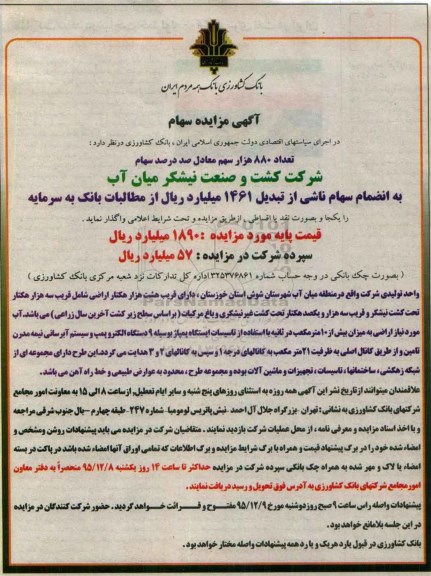 بانک کشاورزی بانک همه مردم ایران
آگهی مزایده سهام
در اجرای سیاستهای اقتصادی دولت جمهوری اسلامی ایران ، بانک کشاورزی درنظر دارد :
تعداد ۸۸۰ هزار سهم معادل صد درصد سهام
شرکت کشت و صنعت نیشکر میان آب
به انضمام سهام ناشی از تبدیل ۱۴۶۱ میلیارد ریال از مطالبات بانک به سرمایه
را یکجا و بصورت نقد یا اقساطی ، ازطریق مزایده و تحت شرایط اعلامی واگذار نماید .
قیمت پایه مورد مزایده : ۱۸۹۰ میلیارد ریال
سپرده شرکت در مزایده : ۵۷ میلیارد ریال
( بصورت چک بانکی در وجه حساب شماره ۳۲۵۳۷۶۸۶۱ اداره کل تدارکات نزد شعبه مرکزی بانک کشاورزی )
واحد تولیدی شرکت واقع درمنطقه میان آب شهرستان شوش استان خوزستان ، دارای قریب هشت هزار هکتار اراضی شامل قریب سه هزار هکتار
تحت کشت نیشکر و قریب سه هزار و یکصد هکتار تحت کشت غیرنیشکری و باغ مرکبات ( براساس سطح زیر کشت آخرین سال زراعی ) می باشد. آب
مورد نیاز اراضی به میزان بیش از ۱۰ مترمکعب در ثانیه با استفاده از تاسیسات ایستگاه پمپاژ بوسیله ۹ دستگاه الکتروپمپ و سیستم آبرسانی نیمه مدرن
تامین و از طریق کانال اصلی به ظرفیت ۲۱ متر مکعب به کانالهای درجه ۱ و سپس به کانالهای ۲ و ۳ هدایت می گردد. این طرح دارای مجموعه ای از
شبکه زهکشی ، ساختمانها ، تاسیسات ، تجهیزات و ماشین آلات بوده و مجموعه طرح ، محدود به عوارض طبیعی و خط راه آهن می باشد.
علاقمندان میتوانند از تاریخ نشر این آگهی همه روزه به استثنای روزهای پنج شنبه و سایر ایام تعطیل، از ساعت ۸ الی ۱۵ به معاونت امور مجامع
شرکتهای بانک کشاورزی به نشانی : تهران - بزرگراه جلال آل احمد - نبش پاتریس لومومبا - شماره ۲۴۷ - طبقه چهارم - بال جنوب شرقی مراجعه
و با اخذ اسناد مزایده و معرفی نامه ، از محل عملیات شرکت بازدید نمایند . متقاضیان شرکت در مزایده می باید پیشنهادات روشن ومشخص و
امضاء شده خود را در برگ پیشنهاد قیمت و همراه با برگ شرایط مزایده و برگ اطلاعات که تمامی اوراق آنها امضاء شده باشد در پاکت در بسته
امضاء یا لاک و مهر شده به همراه چک بانکی سپرده شرکت در مزایده حداکثر تا ساعت ۱۴ روز یکشنبه ۹۵/۱۲/۸ منحصراً به دفتر معاون
امور مجامع شرکتهای بانک کشاورزی به آدرس فوق تحویل و رسید دریافت نمایند.
پیشنهادات واصله راس ساعت ۹ صبح روز دوشنبه مورخ ۹۵/۱۲/۹ مفتوح و قرائت خواهد گردید. حضور شرکت کنندگان در مزایده
در این جلسه بلامانع خواهد بود .
بانک کشاورزی در قبول یا رد هریک و یا رد همه پیشنهادات واصله مختار خواهد بود .